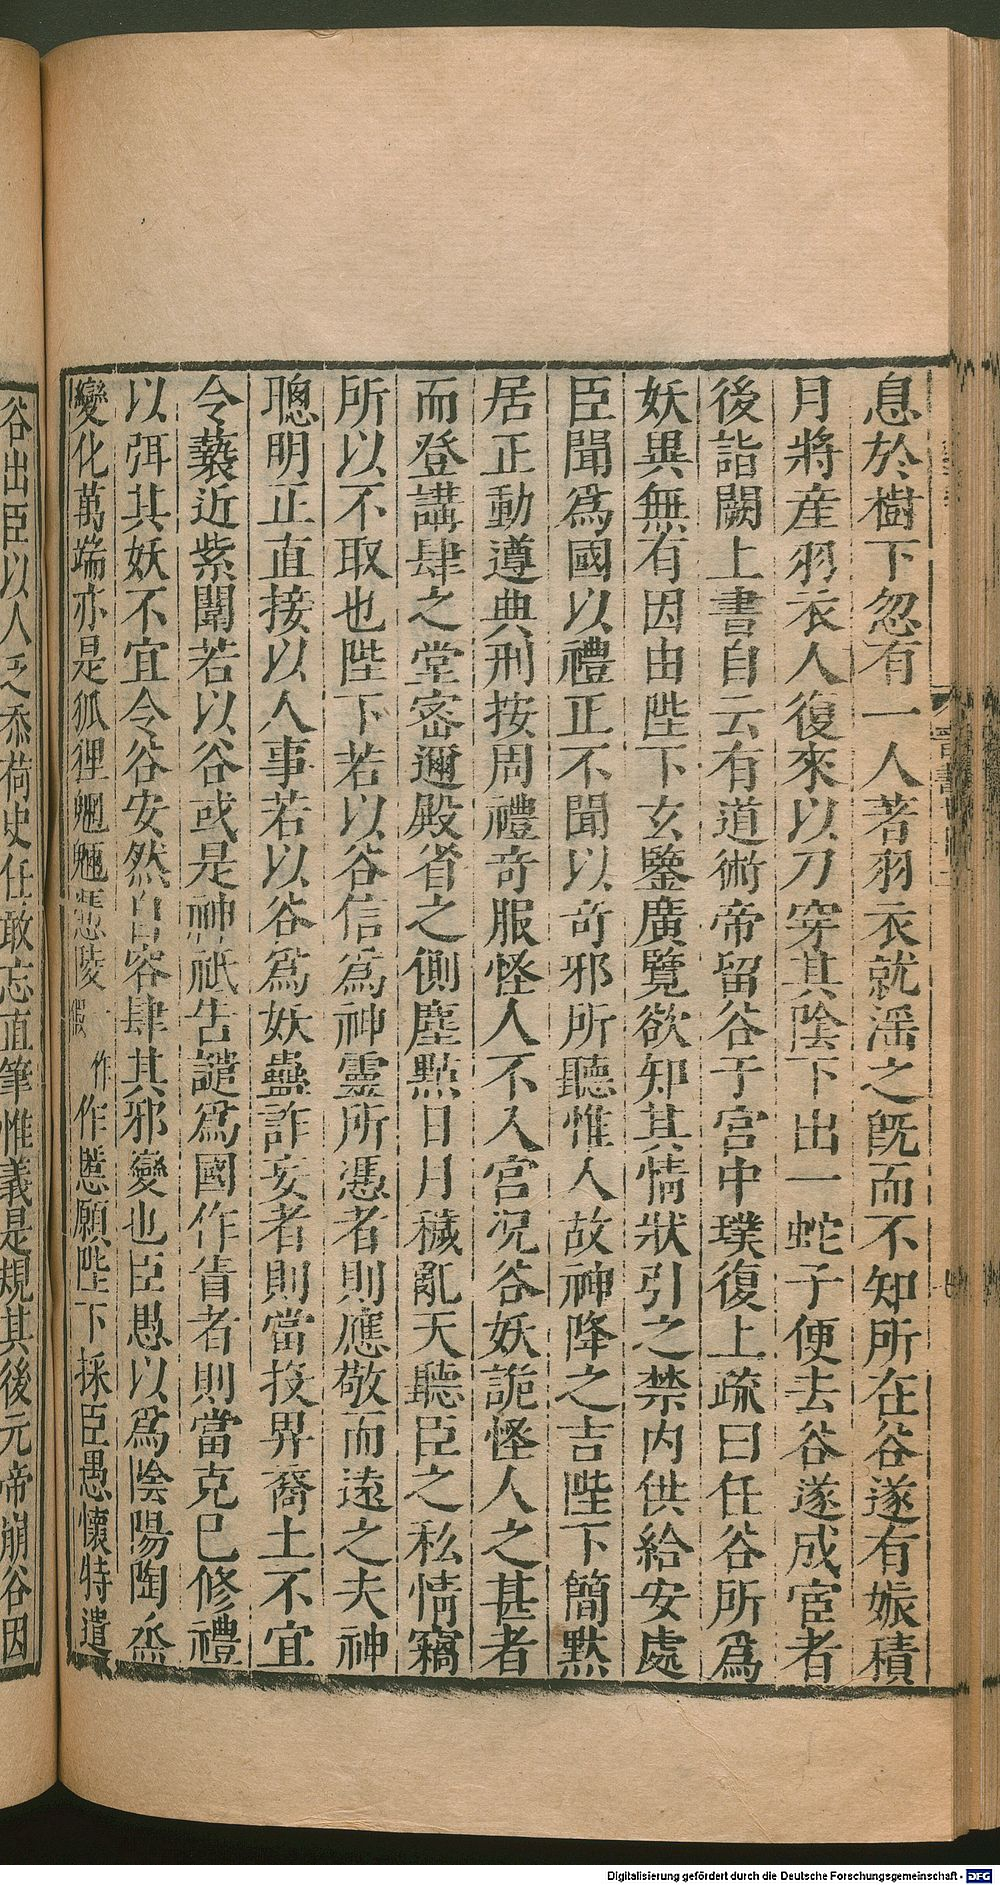 息於樹下忽有一人著羽衣就滛之旣而不知所在谷遂有娠積
月將産羽衣人復來以刀穿其隂下出一蛇子便去谷遂成宦者
後詣闕上書自云有道術帝留谷于宫中璞復上疏曰任谷所爲
妖異無有因由陛下玄鑒廣覽欲知其情狀引之禁内供給安處
臣聞爲國以禮正不聞以奇邪所聽惟人故神降之吉陛下簡黙
居正動遵典刑按周禮奇服怪人不入宫況谷妖詭怪人之甚者
而登講肆之堂宻邇殿省之側塵㸃日月穢亂天聽臣之私情竊
所以不取也陛下若以谷信爲神靈所憑者則應敬而遠之夫神
聰明正直接以人事若以谷爲妖蠱詐妄者則當投畀裔土不宜
令褻近紫闈若以谷或是神祇告譴爲國作眚者則當克已修禮
以弭其妖不宜令谷安然自容肆其邪變也臣愚以爲隂陽陶烝
變化萬端亦是狐狸魍魎憑陵 一作假 作慝願陛下採臣愚懷特遣
谷出臣以人乏忝荷史任敢忘直筆惟義是規其後元帝崩谷因
Digitalisierung gefördert durch die Deutsche Forschungsgemeinschaft - DFG